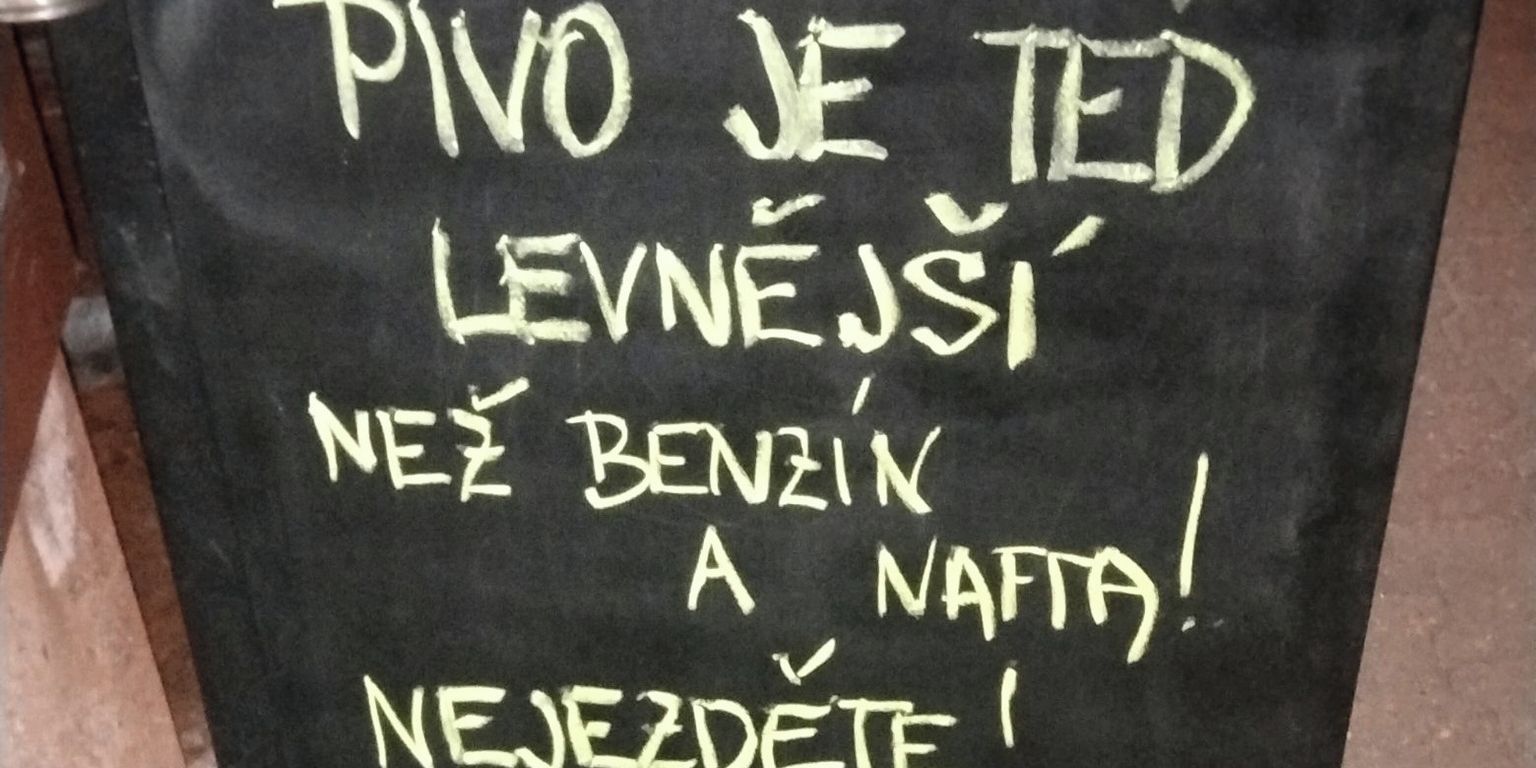 PIVO JE TEĎ
LEVNĚJŠÍ
NEŽ BENZÍN
A NAFTA!
NEJEZDĚTE!